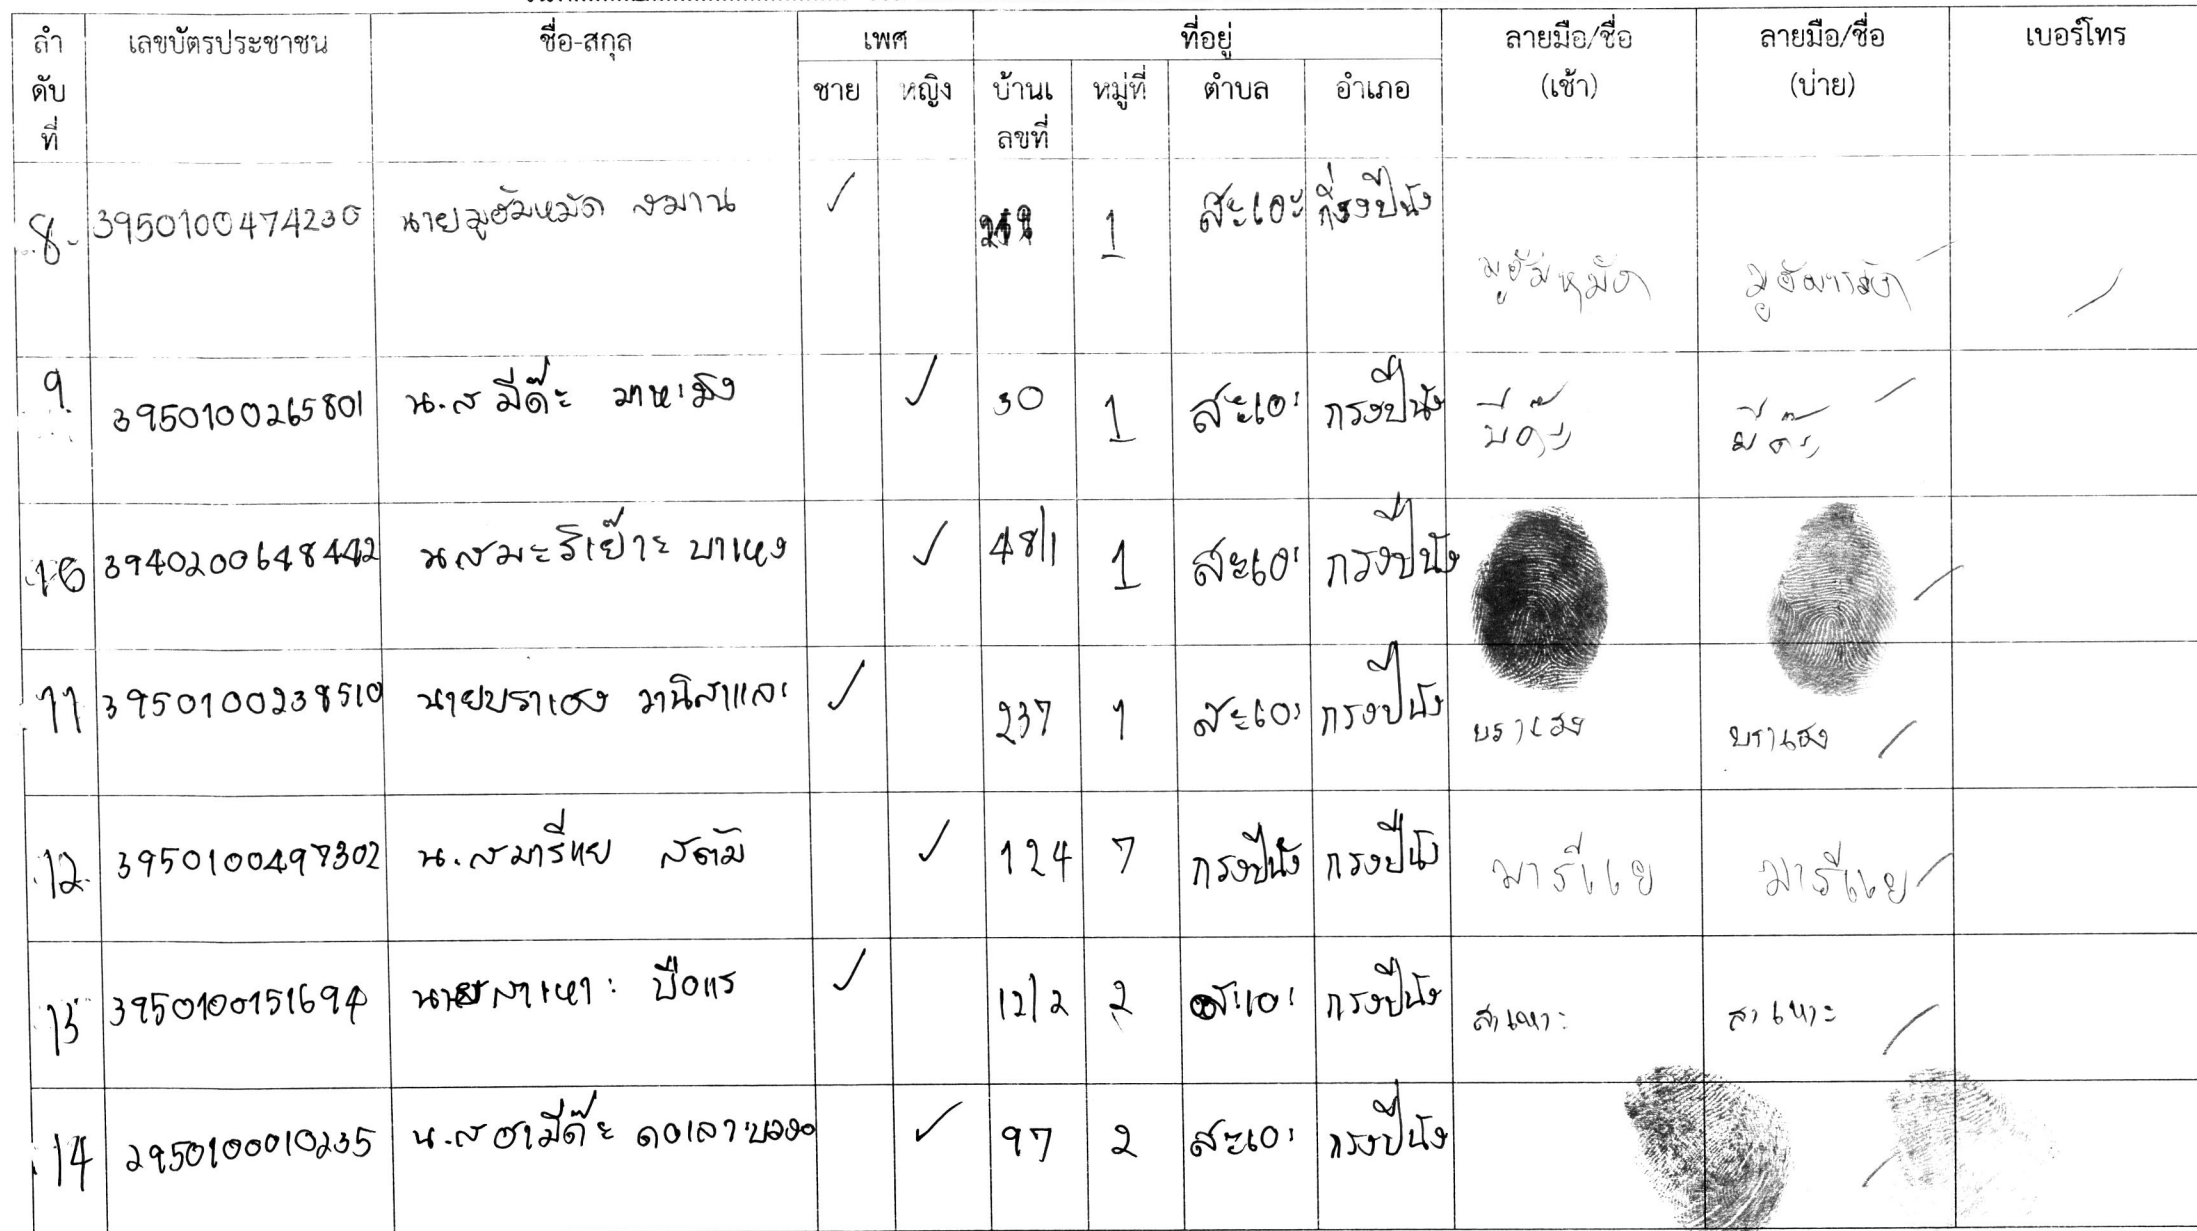 ลำดับที่ เลขบัตรประชาชน ชื่อ-สกุล เพศ ที่อยู่ ลายมือ/ชื่อ (เช้า) ลายมือ/ชื่อ (บ่าย) เบอร์โทร
ชาย หญิง บ้านเลขที่ หมู่ที่ ตำบล อำเภอ
8 3950100474230 นายมูฮัมหมัด สมาน ✓ 1 สะเอะ กรงปินัง มูฮัมหมัด มูฮัมหมัด
9 3950100265801 น.ส มีด๊ะ ✓ 30 1 สะเอะ กรงปินัง มีด๊ะ มีด๊ะ
10 3940200648442 น.ส มะริเย๊าะ บาเหง ✓ 48/1 1 สะเอะ กรงปินัง
11 3950100238510 นายบราเฮง วานิสาและ ✓ 237 1 สะเอะ กรงปินัง บราเฮง บราเฮง
12 3950100497302 น.ส มารีแย ✓ 124 7 กรงปินัง กรงปินัง มารีแย มารีแย
13 3950100151694 นายสาเหาะ บือแร ✓ 12/2 2 สะเอะ กรงปินัง สาเหาะ สาเหาะ
14 2950100010235 น.ส ฮามีด๊ะ ✓ 97 2 สะเอะ กรงปินัง